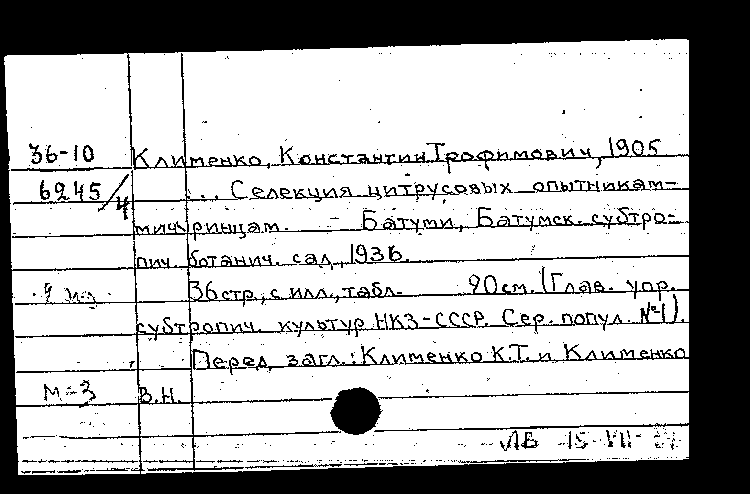 36-10 Клименко, Константин Трофимович, 1905
6245/4 ... Селекция цитрусовых опытникам-
мичуринцам. - Батуми, Батумск. субтро-
пич. ботанич. сад, 1936.
36 стр., с илл., табл. 20 см. (Глав. упр.
субтропич. культур НКЗ-СССР. Сер. попул. №1).
Перед загл.: Клименко К.Т. и Клименко
М-3 В.Н.
ЛВ 15-VII-